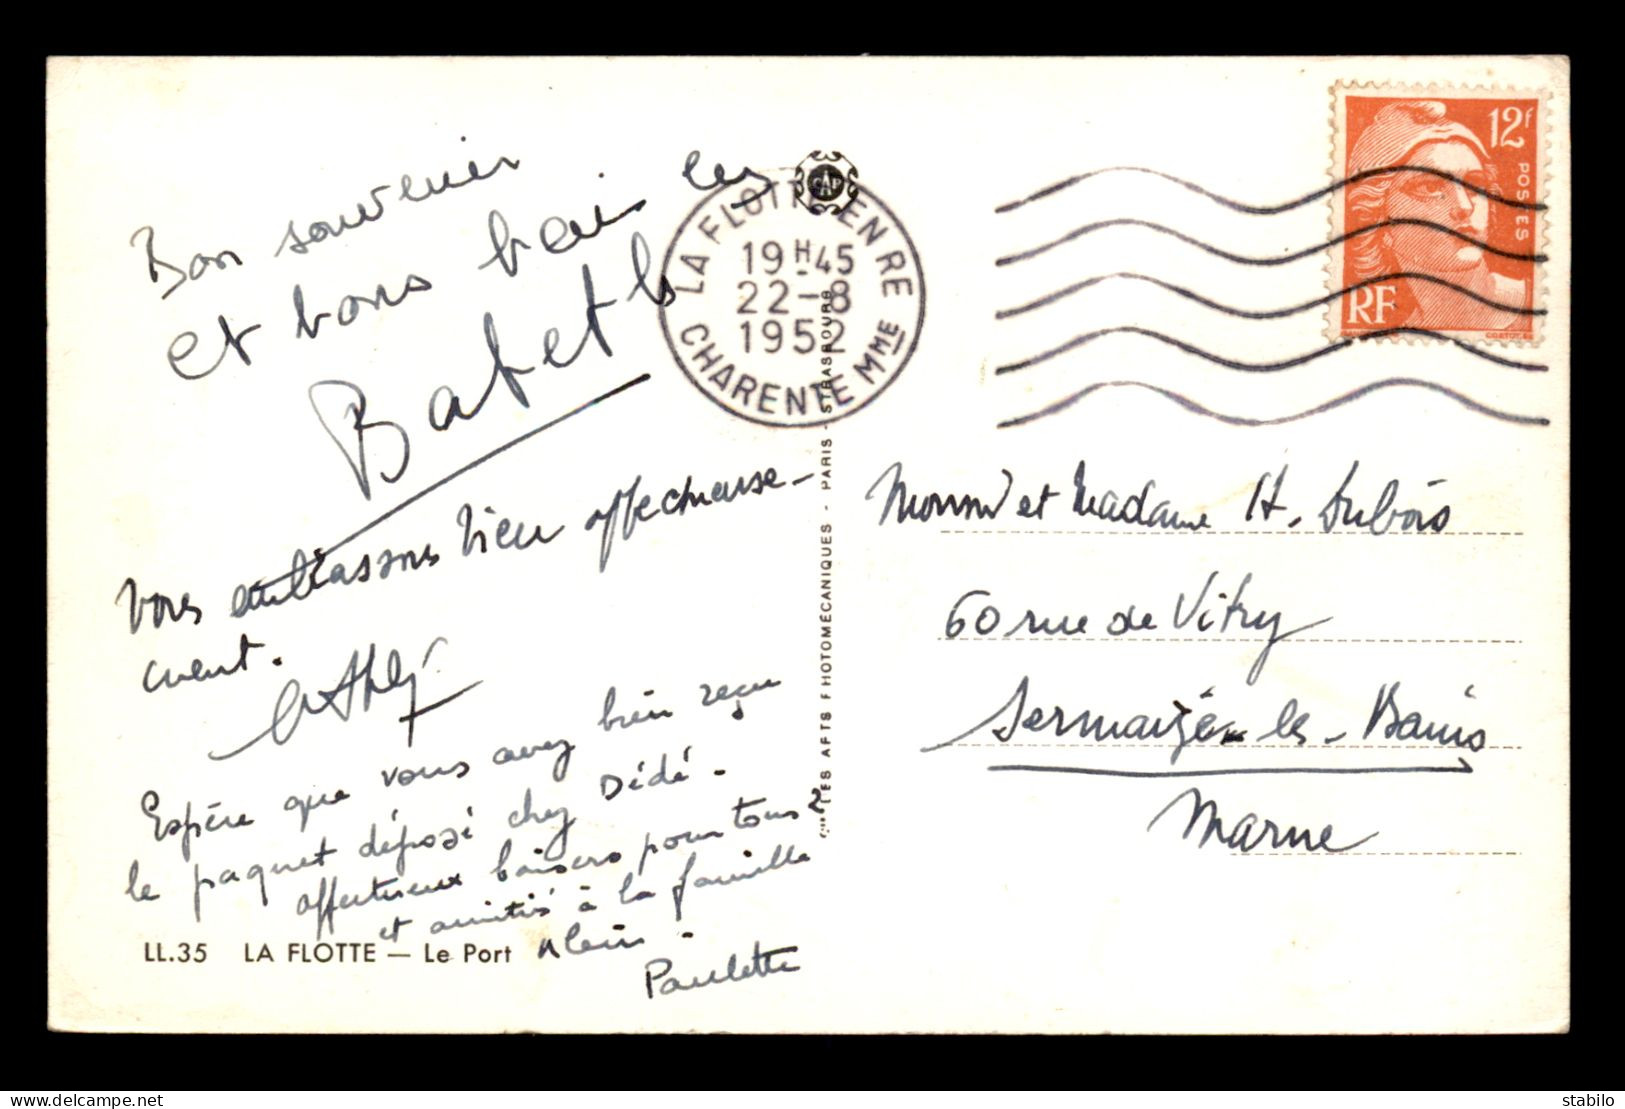 Bon souvenir
et bons baisers
Babeth
Vous embrassons bien affectueuse-
ment.
Espère que vous avez bien reçu
le paquet déposé chez Dédé.
affectueux baisers pour tous 2
et amitiés à la famille
Alain.
Paulette
LL.35 LA FLOTTE — Le Port
CAP
LA FLOTTE EN RE
19H45
22-8
1952
CHARENTE MME
CIE LES ARTS PHOTOMECANIQUES - PARIS - STRASBOURG
12F
POSTES
RF
Monsr et Madame H. Dubois
60 rue de Vitry
Sermaize-les-Bains
Marne
Delcampe.net
stabilo